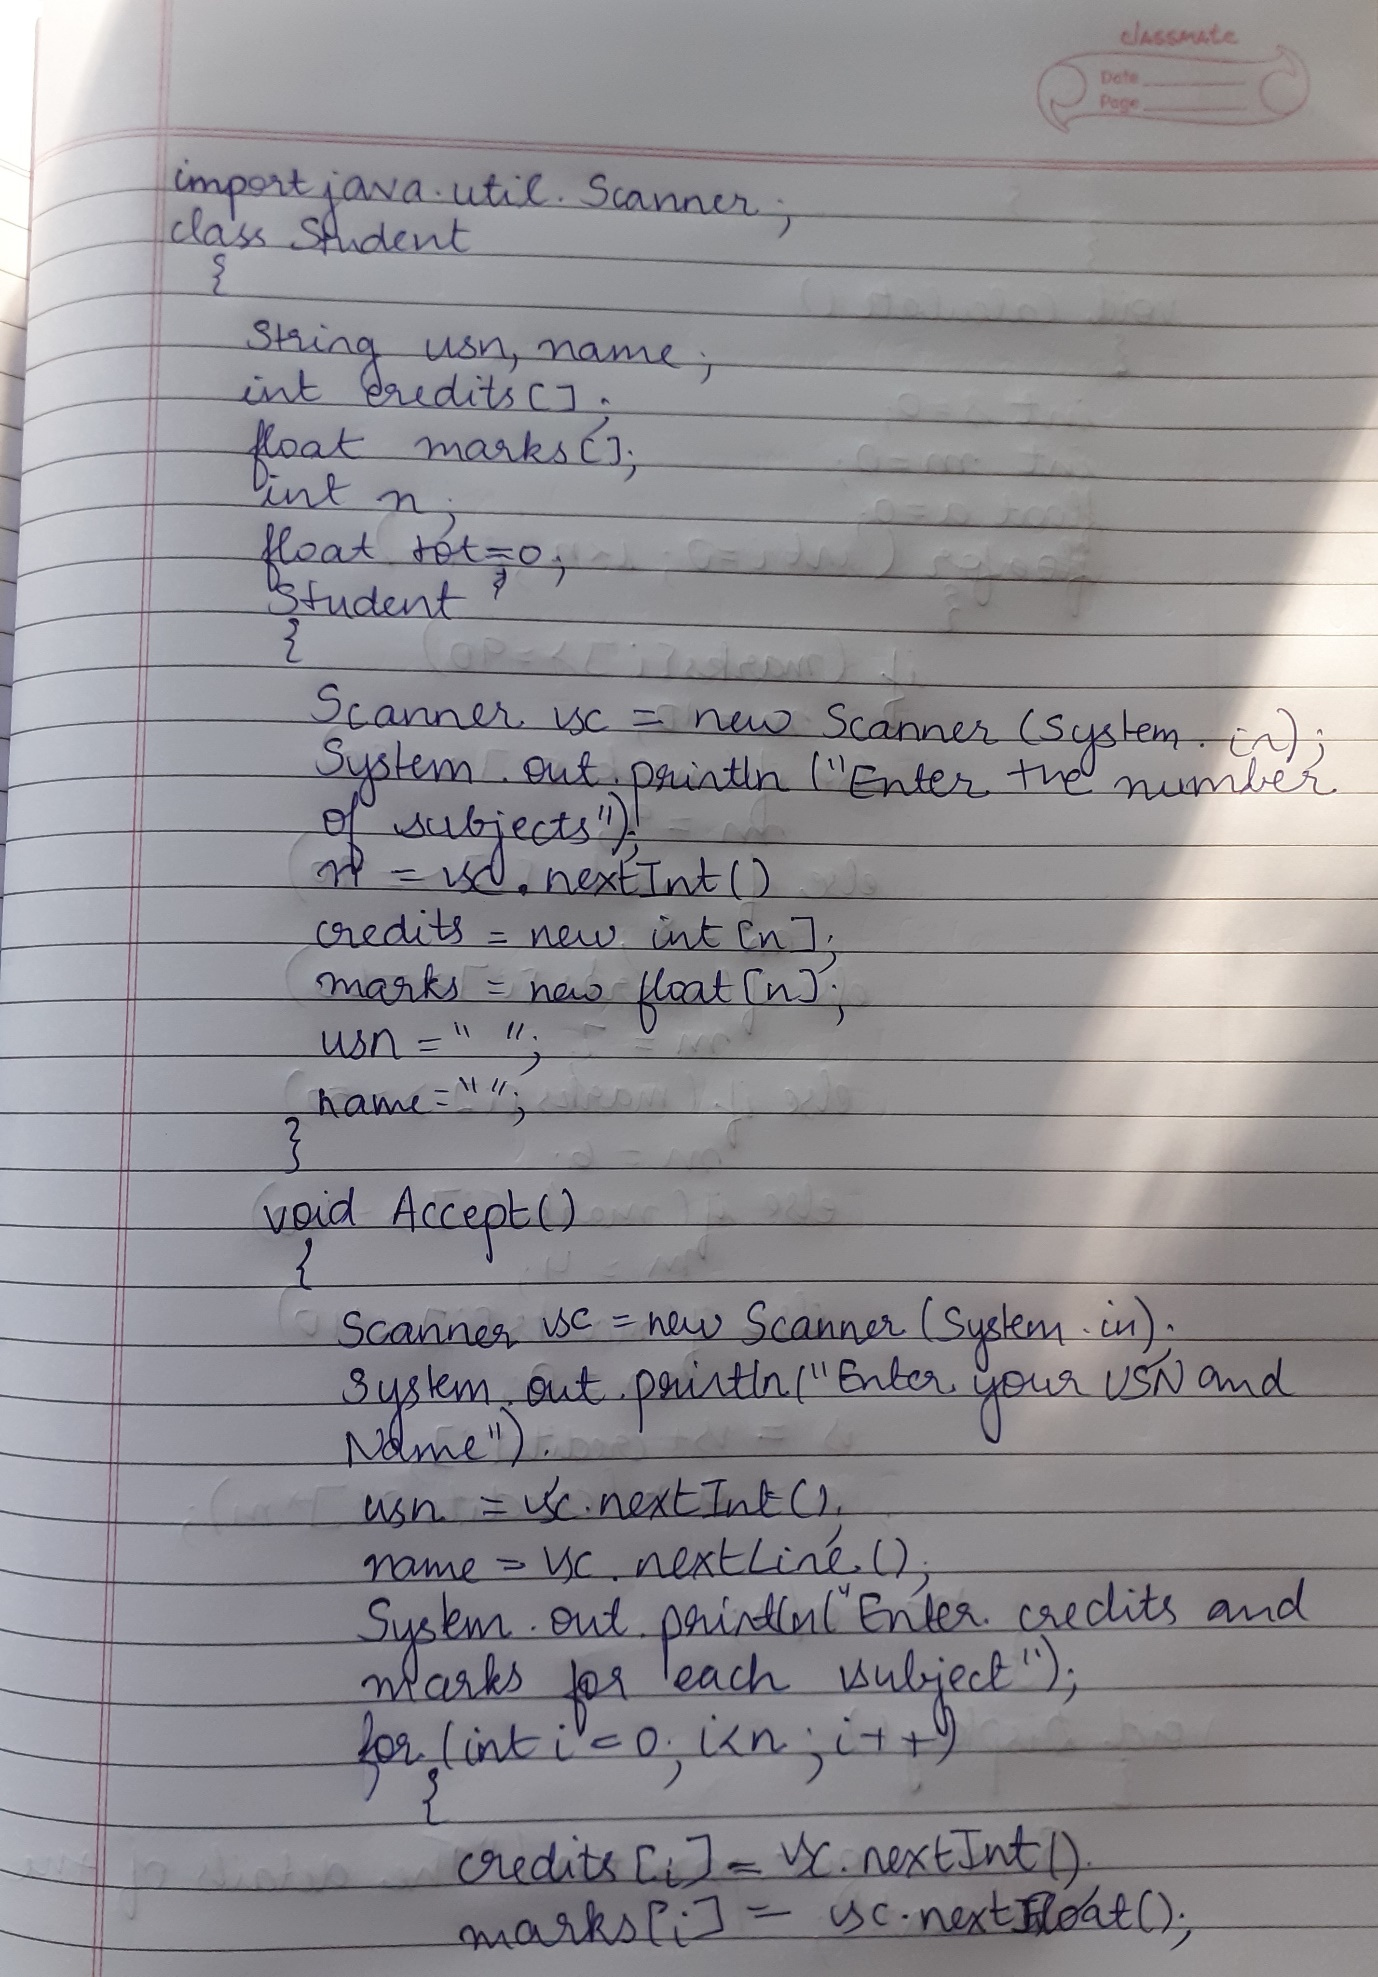 classmate
Date
Page
import java.util.Scanner;
class Student
{
String usn, name;
int credits[];
float marks[];
int n;
float tot=0;
Student
{
Scanner sc = new Scanner (System.in);
System.out.println ("Enter the number
of subjects");
n = sc.nextInt()
credits = new int [n];
marks = new float [n];
usn = " ";
name = "";
}
void Accept()
{
Scanner sc = new Scanner (System.in);
System.out.println("Enter your USN and
Name");
usn = sc.nextInt();
name = sc.nextLine();
System.out.println("Enter credits and
marks for each subject");
for (int i = 0; i<n; i++)
{
credits [i] = sc.nextInt();
marks [i] = sc.nextFloat();